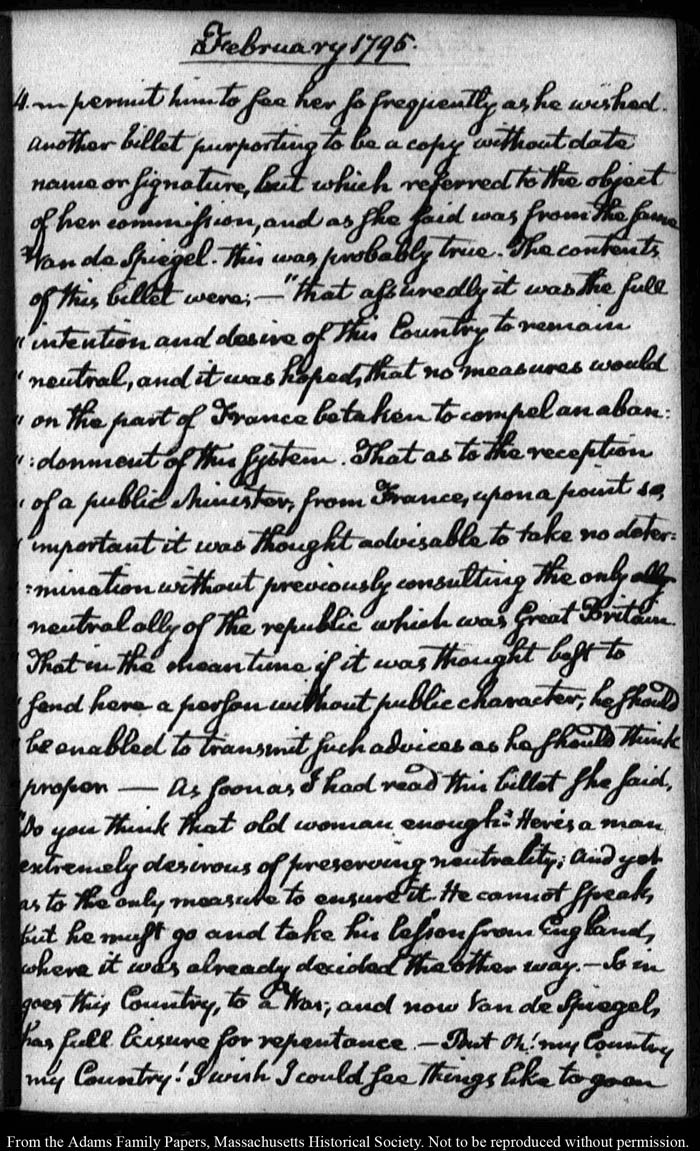 February 1795.
4. m permit him to see her so frequently as he wished.
another billet purporting to be a copy without date
name or signature, but which referred to the object
of her commission, and as she said was from the same
Van de Spiegel. this was probably true. The contents
of this billet were; — "that assuredly it was the full
" intention and desire of this Country to remain
" neutral, and it was hoped, that no measures would
" on the part of France be taken to compel an aban:
" :donment of this System. That as to the reception
" of a public Minister, from France, upon a point so
" important it was thought advisable to take no deter:
" :mination without previously consulting the only ally
neutral ally of the republic which was Great Britain.
" That in the mean time if it was thought best to
" send here a person without public character, he should
" be enabled to transmit such advices as he should think
proper — As soon as I had read this billet she said,
"Do you think that old woman enough? Here's a man
extremely desirous of preserving neutrality; and yet
as to the only measure to ensure it. He cannot speak,
but he must go and take his lesson from England,
where it was already decided the other way. — So in
goes this Country, to a War; and now Van de Spiegel,
has full leisure for repentance. — But Oh! my Country
my Country! I wish I could see things like to go on
From the Adams Family Papers, Massachusetts Historical Society. Not to be reproduced without permission.